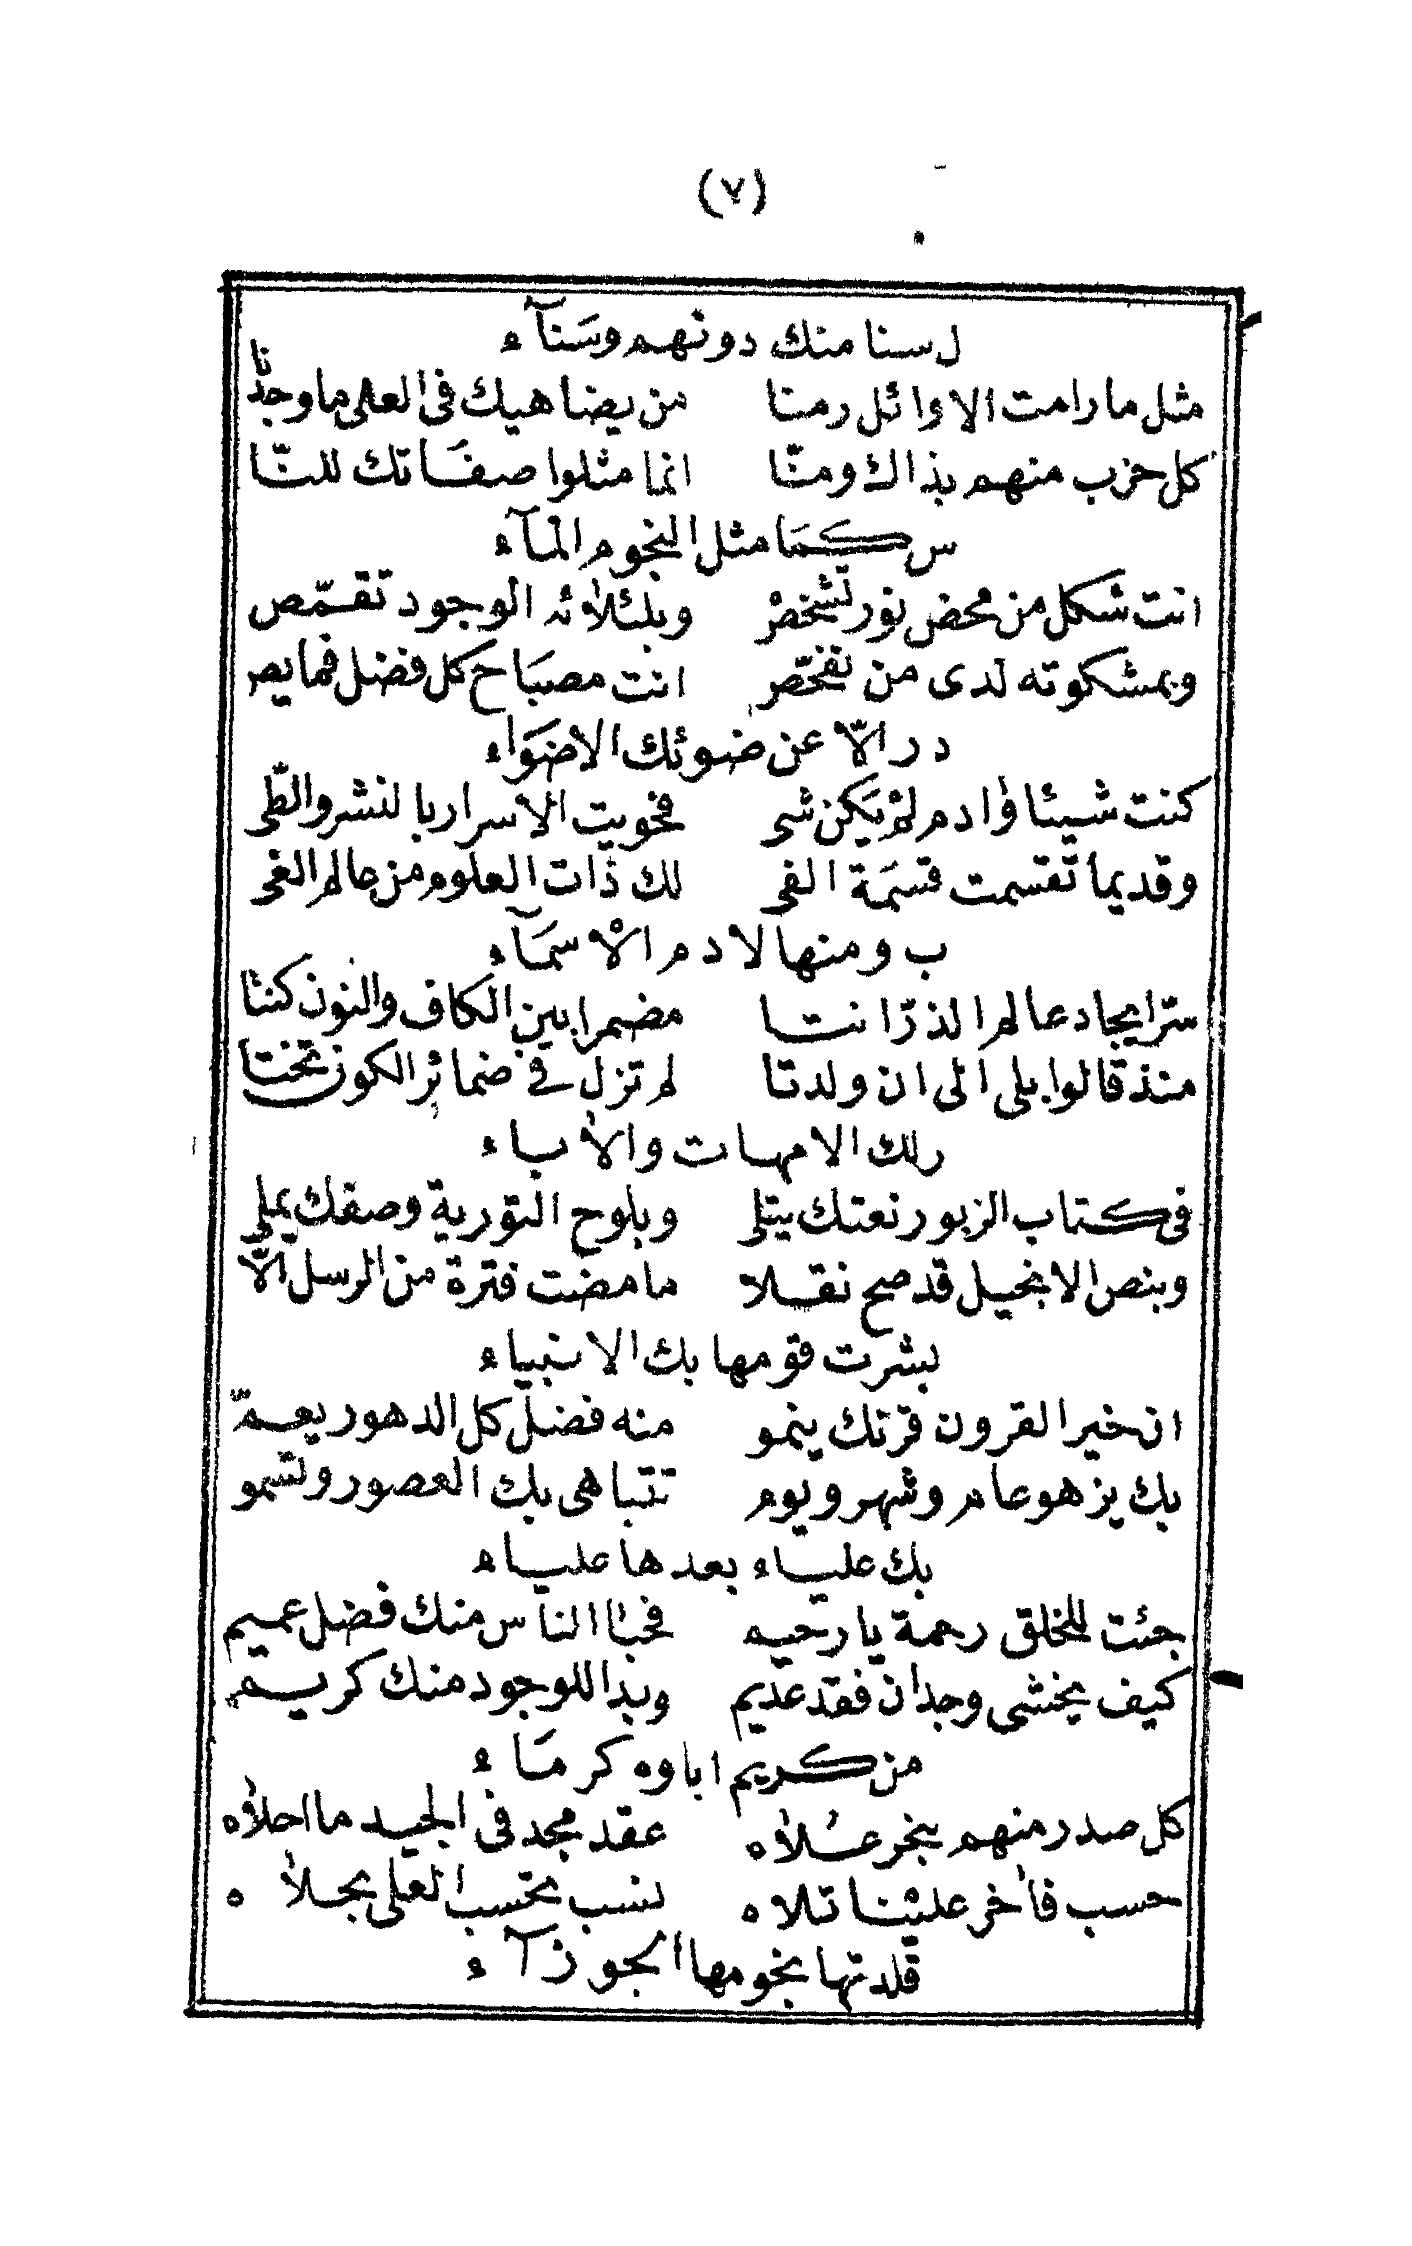 (٧)
ل سنا منك دونهم وسَنآء
مثل ما رامت الاوائل رمنا من يضاهيك فى العلى ما وجدنا
كل حزب منهم بذاك ومنّا انما مثلوا صفَاتك للنّا
س كمَا مثل النجوم المآء
انت شكل من محض نور تشخصْ وبلئلائه الوجود تقمّص
وبمشكوته لدى من تفحّص انت مصبَاح كل فضل فما يص
در الّا عن ضوئك الاضوَاء
كنت شيئا وٰادم لمْ يَكن شى فحويت الاسرار با لنشر والطّى
وقديما تقسمت قسمَة الفى لك ذات العلوم من عالم الغى
ب ومنها لادم الْاسمَآء
سرّ ايجاد عالم الذرّ انتا مضمرا بين الكاف والنون كنتا
منذ قالوا بلى الى ان ولدتا لم تزل فى ضمائر الكون تختا
ر لك الامهات والاٰباء
فى كتاب الزبور نعتك يتلى وبلوح التورية وصفك يملى
وبنص الانجيل قد صح نقلا ما مضت فترة من الرسل الّا
بشرت قومها بك الانبياء
ان خير القرون قرنك ينمو منه فضل كل الدهور يعمّ
بك يزهو عام وشهر ويوم تتباهى بك العصور وتسمو
بك علياء بعدها علياء
جئت للخلق رحمة يا رحيم فحبٰا الناس منك فضل عميم
كيف يخشى وجدان فقد عديم وبدا للوجود منك كريم
من كريم اباوه كرمَاء
كل صدر منهم بنحر عُلاٰه عقد مجد فى الجيد ما احلاٰه
حسب فاٰخر عليْنا تلاه نسب تحسب العلى بحلاٰه
قلدتها نجومها الجوزآء